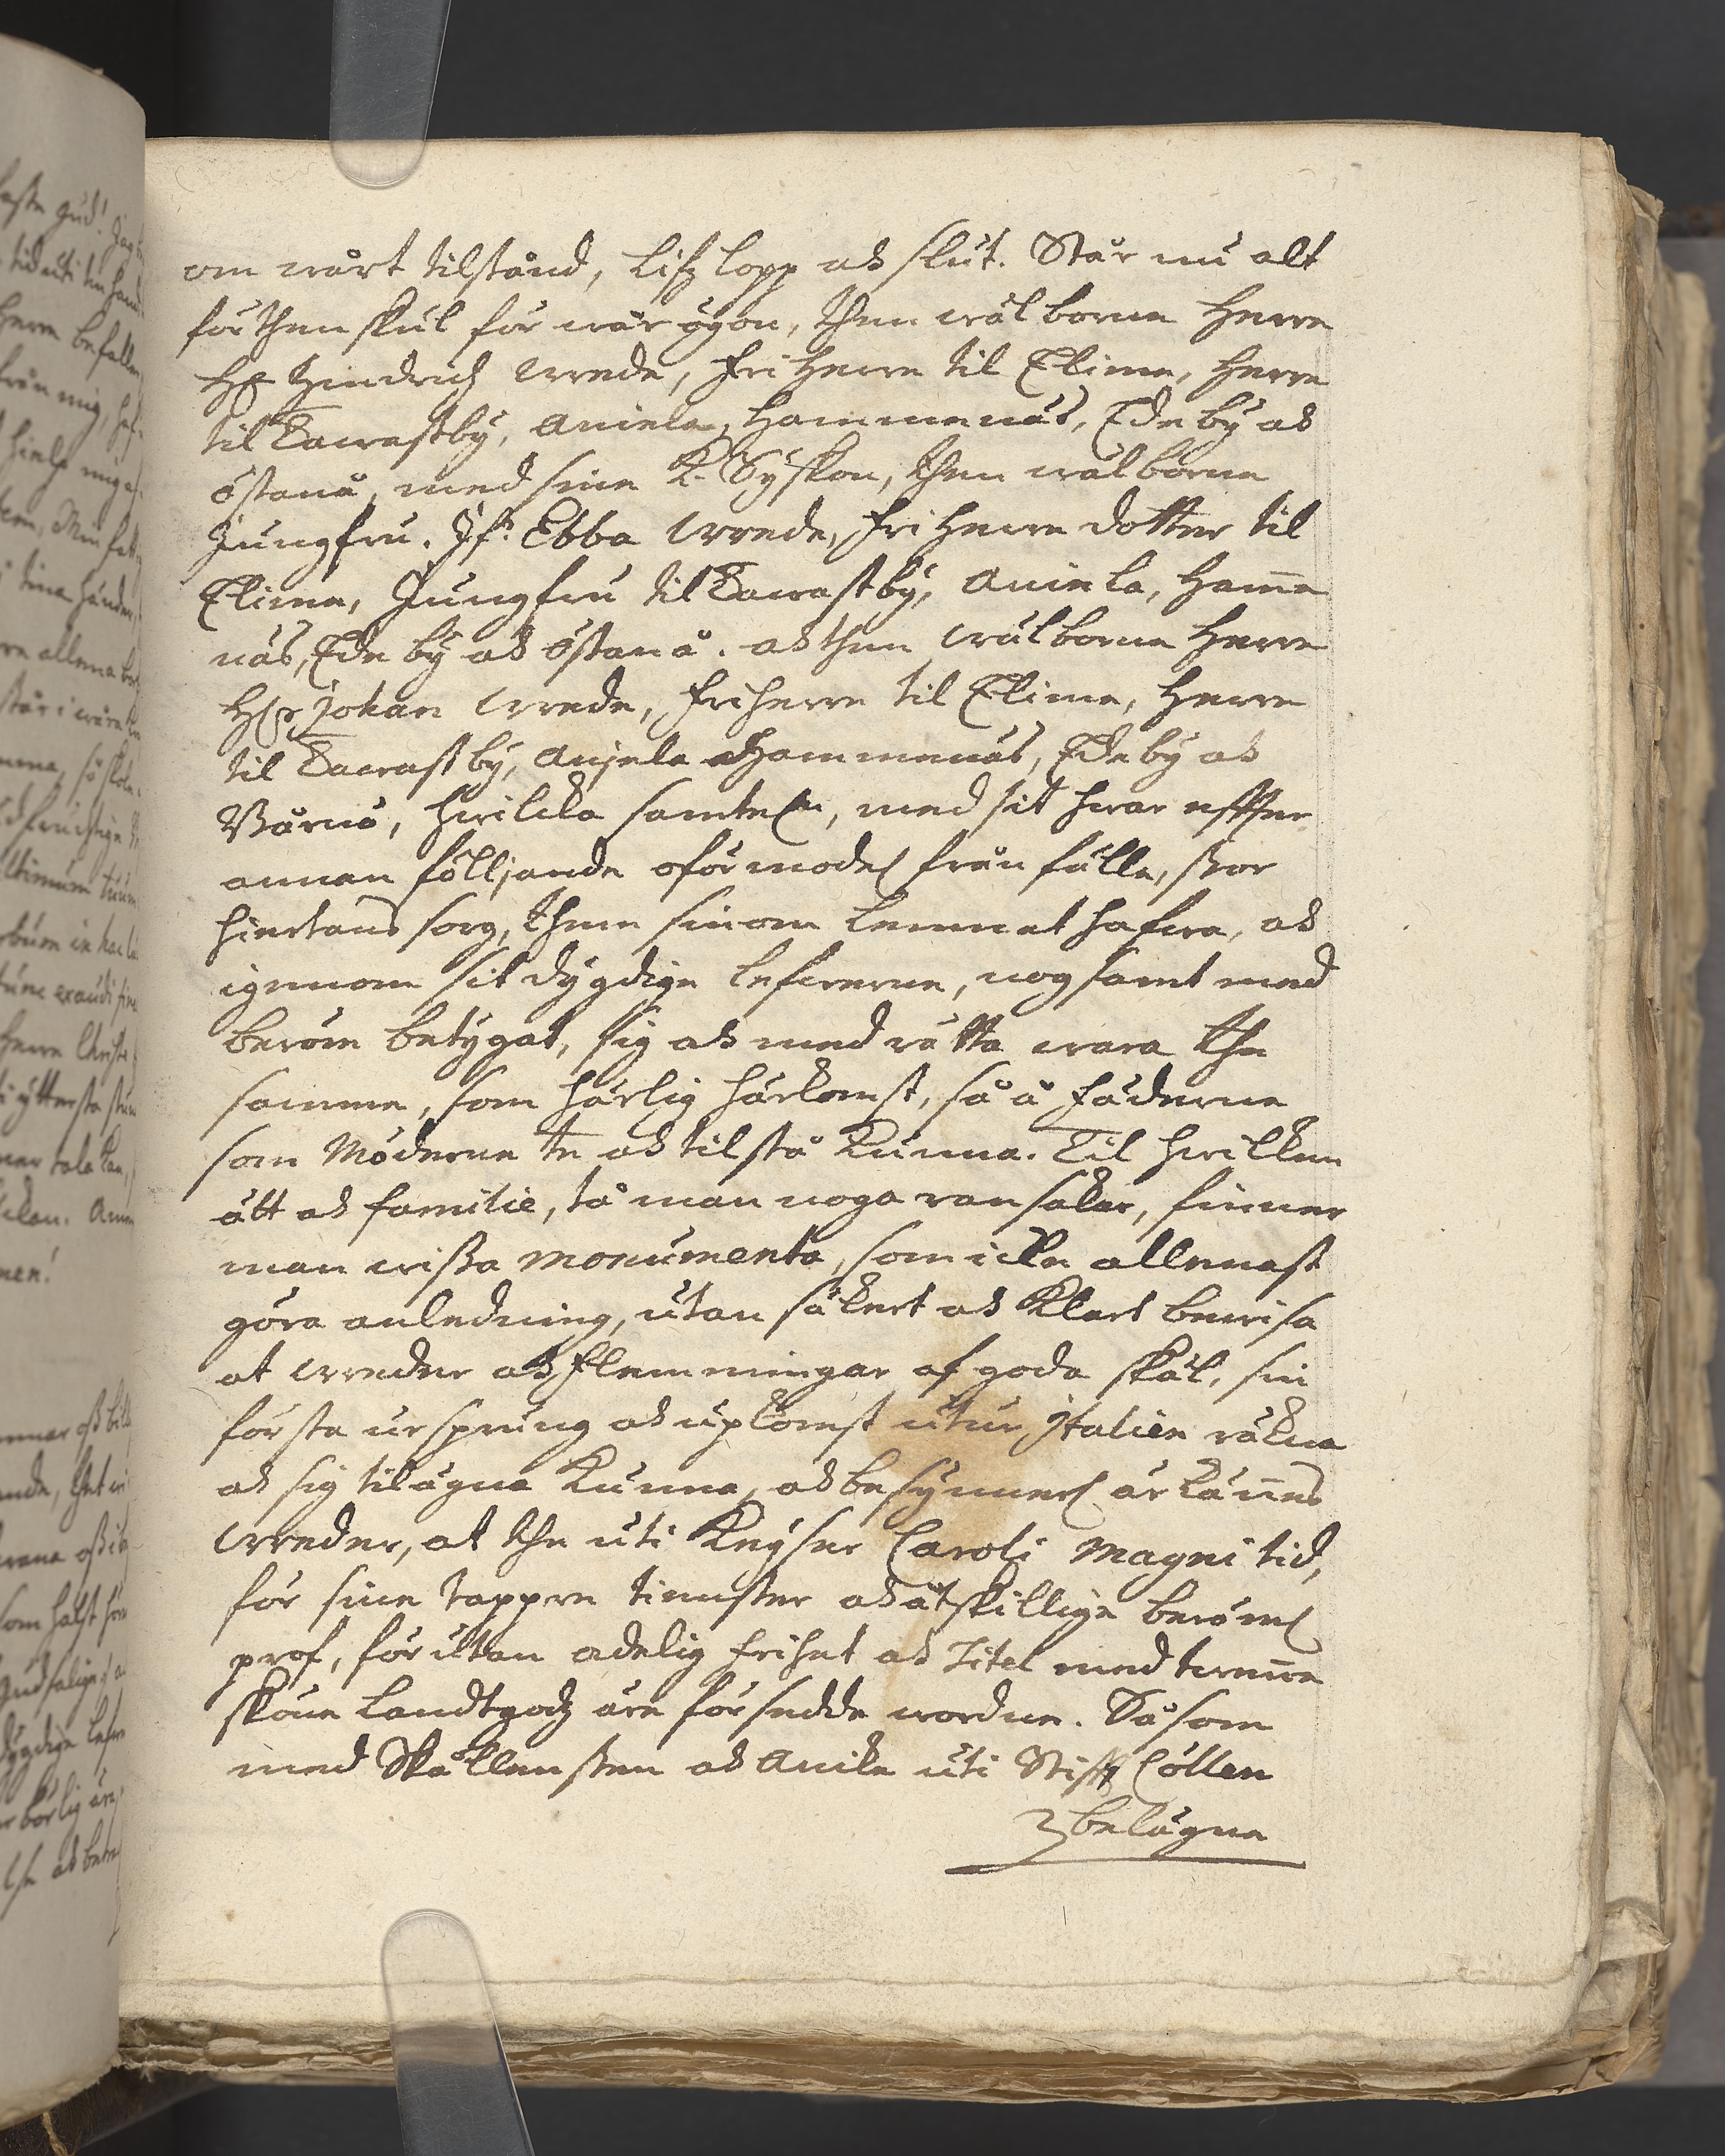 om wårt tilstånd, Lifz lopp ock slut. Står nu alt
förthenskul för wår ögon, then wälborne Herre
Hr Hindrich Wrede, friHerre til Elime, Herre
til Tawastby, Aniela, Hammenäs, Edeby ock
östanå, med sine K. Syskon, then wälborne
Jungfru. Jfr: Ebba Wrede, friHerre dotter til
Elime, Jungfru til Tawastby, Aniela, Ham̄e
näs, Edeby ock östanå. ock then wälborne Herre
Hr Johan Wrede, friherre til Elime, Herre
til Tawastby, Anjela Hammenäs, Edeby ock
Wärnö, hwilcka samtel., med sit hwar effter
annan fölljande oförmodel. från fälle, stor
hiertans sorg, them sinom lemnat hafwa, ock
igenom sit dygdige lefwerne, nogsamt med
beröm betygat, sig ock med rätta wara the
samme, som härlig härkomst, så å Fäderne
som Möderne te ock tilstå kunna. Til hwilken
ätt ock familie, tå man noga ransakar, finner
man wissa monumenta, som icke allenast
göra anledning, utan säkert ock klart bewisa
at Wreder ock Flemmingar af goda skäl, sin
första ursprung ock upkomst utur Italien räkna
ock sig tilägna kunna, ock besynnerl. är kän̄es
Wreder, at the uti Keyser Caroli Magni tid,
för sine tappre tienster ock åtskillige beröml.
prof, förutan adelig frihet ock Titel med twen̄e
sköne Landtgodz äre försedde wordne. Såsom
med Skällensten ock Anike uti Stifft Cöllen
belägne